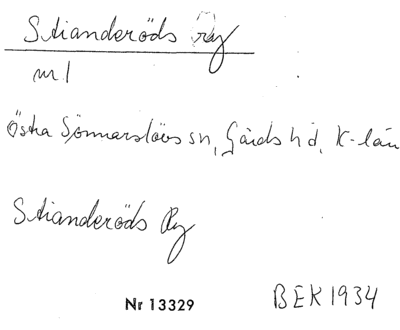 Stianderöds Ry
nr 1
Östra Sönnarslövs sn, Gärds hd, K-län
Stianderöds Ry
Nr 13329
BEK 1934